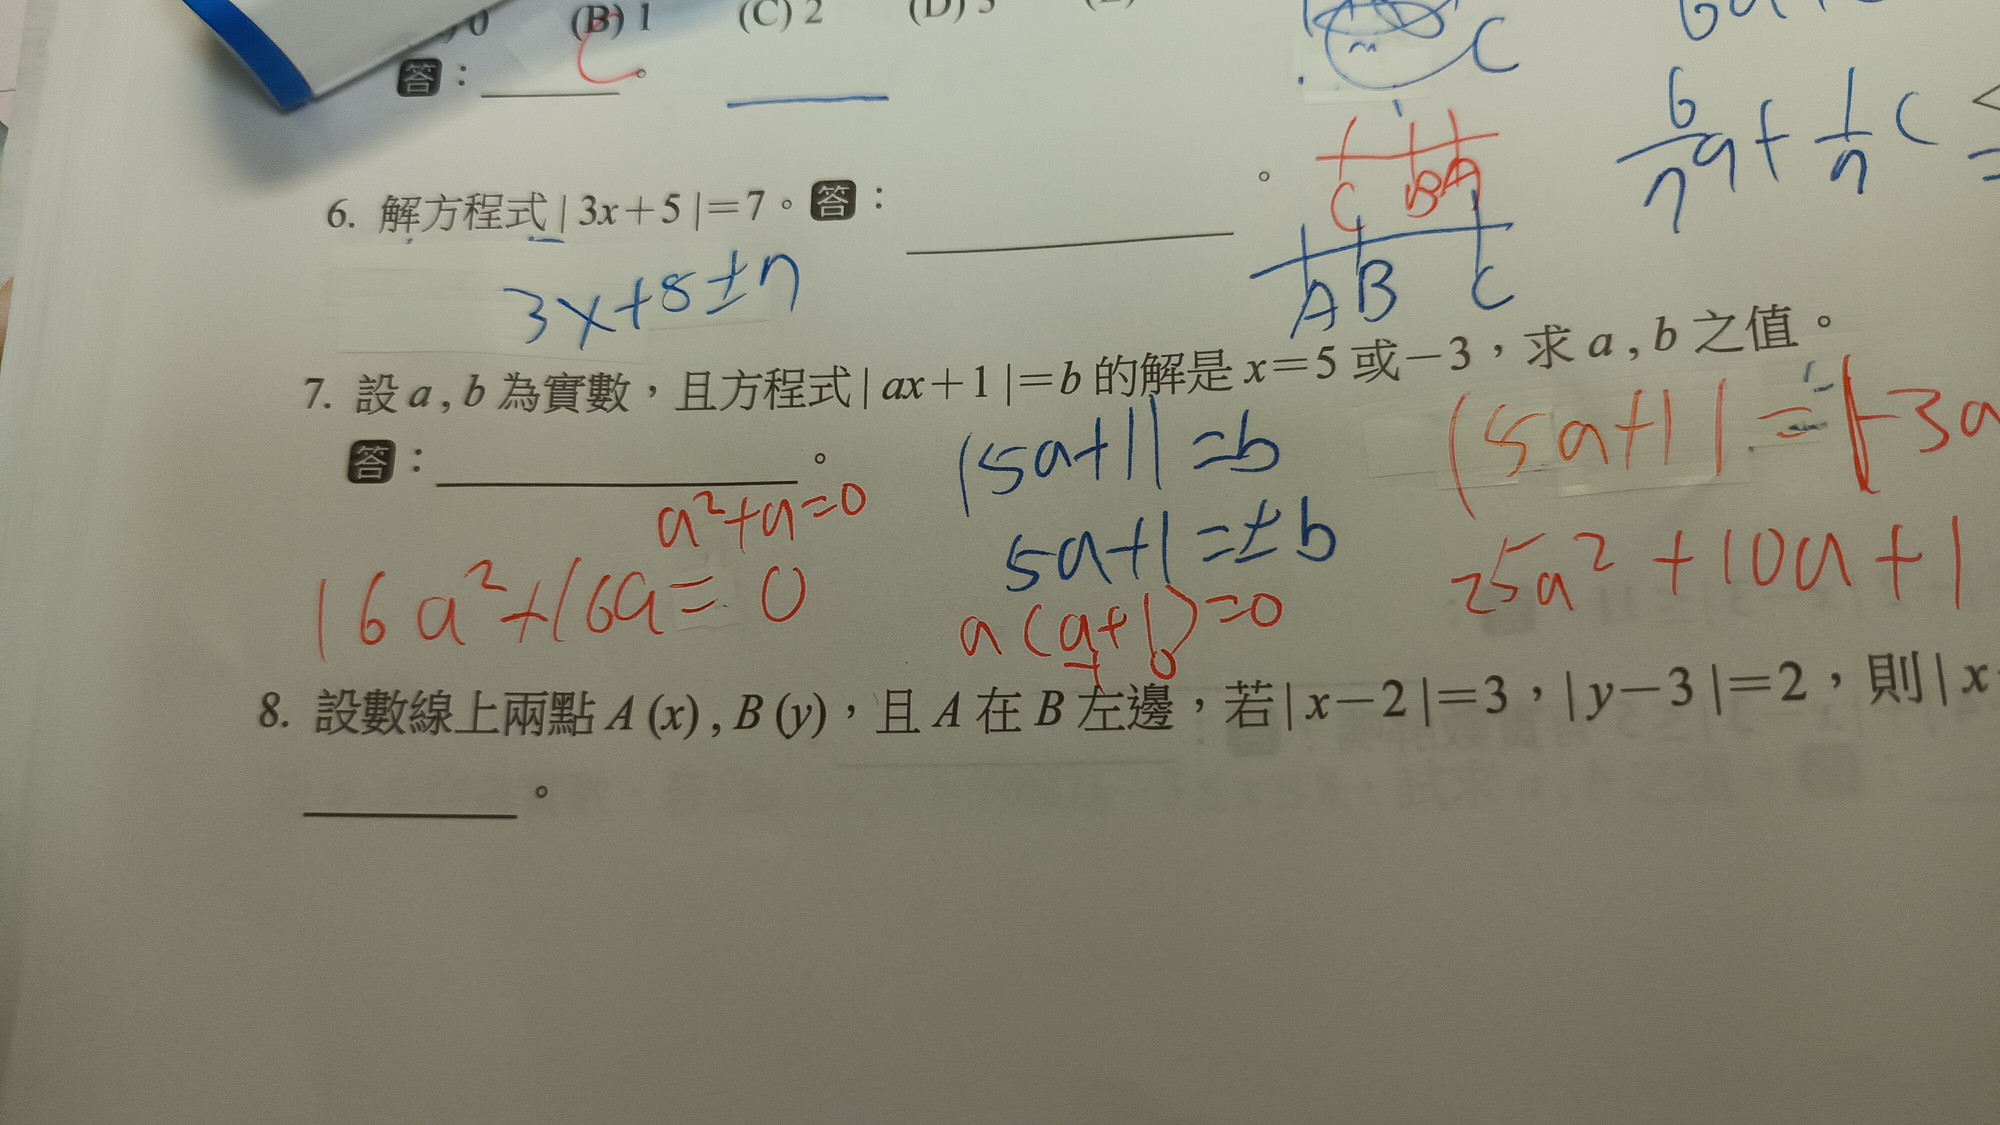 0 (B) 1 (C) 2 (D) 3
答：
C
6. 解方程式 | 3x＋5 |＝7。答： 。
3x+8±7
C B A
A B C
6/7 a + 1/7 C
7. 設 a , b 為實數，且方程式 | ax＋1 |＝b 的解是 x＝5 或－3，求 a , b 之值。
答： 。
|5a+1| = b
|5a+1| = |-3a
a²+a=0
5a+1=±b
25a²+10a+1
16a²+16a=0
a(a+1)=0
8. 設數線上兩點 A (x) , B (y)，且 A 在 B 左邊，若 | x－2 |＝3，| y－3 |＝2，則 | x
。